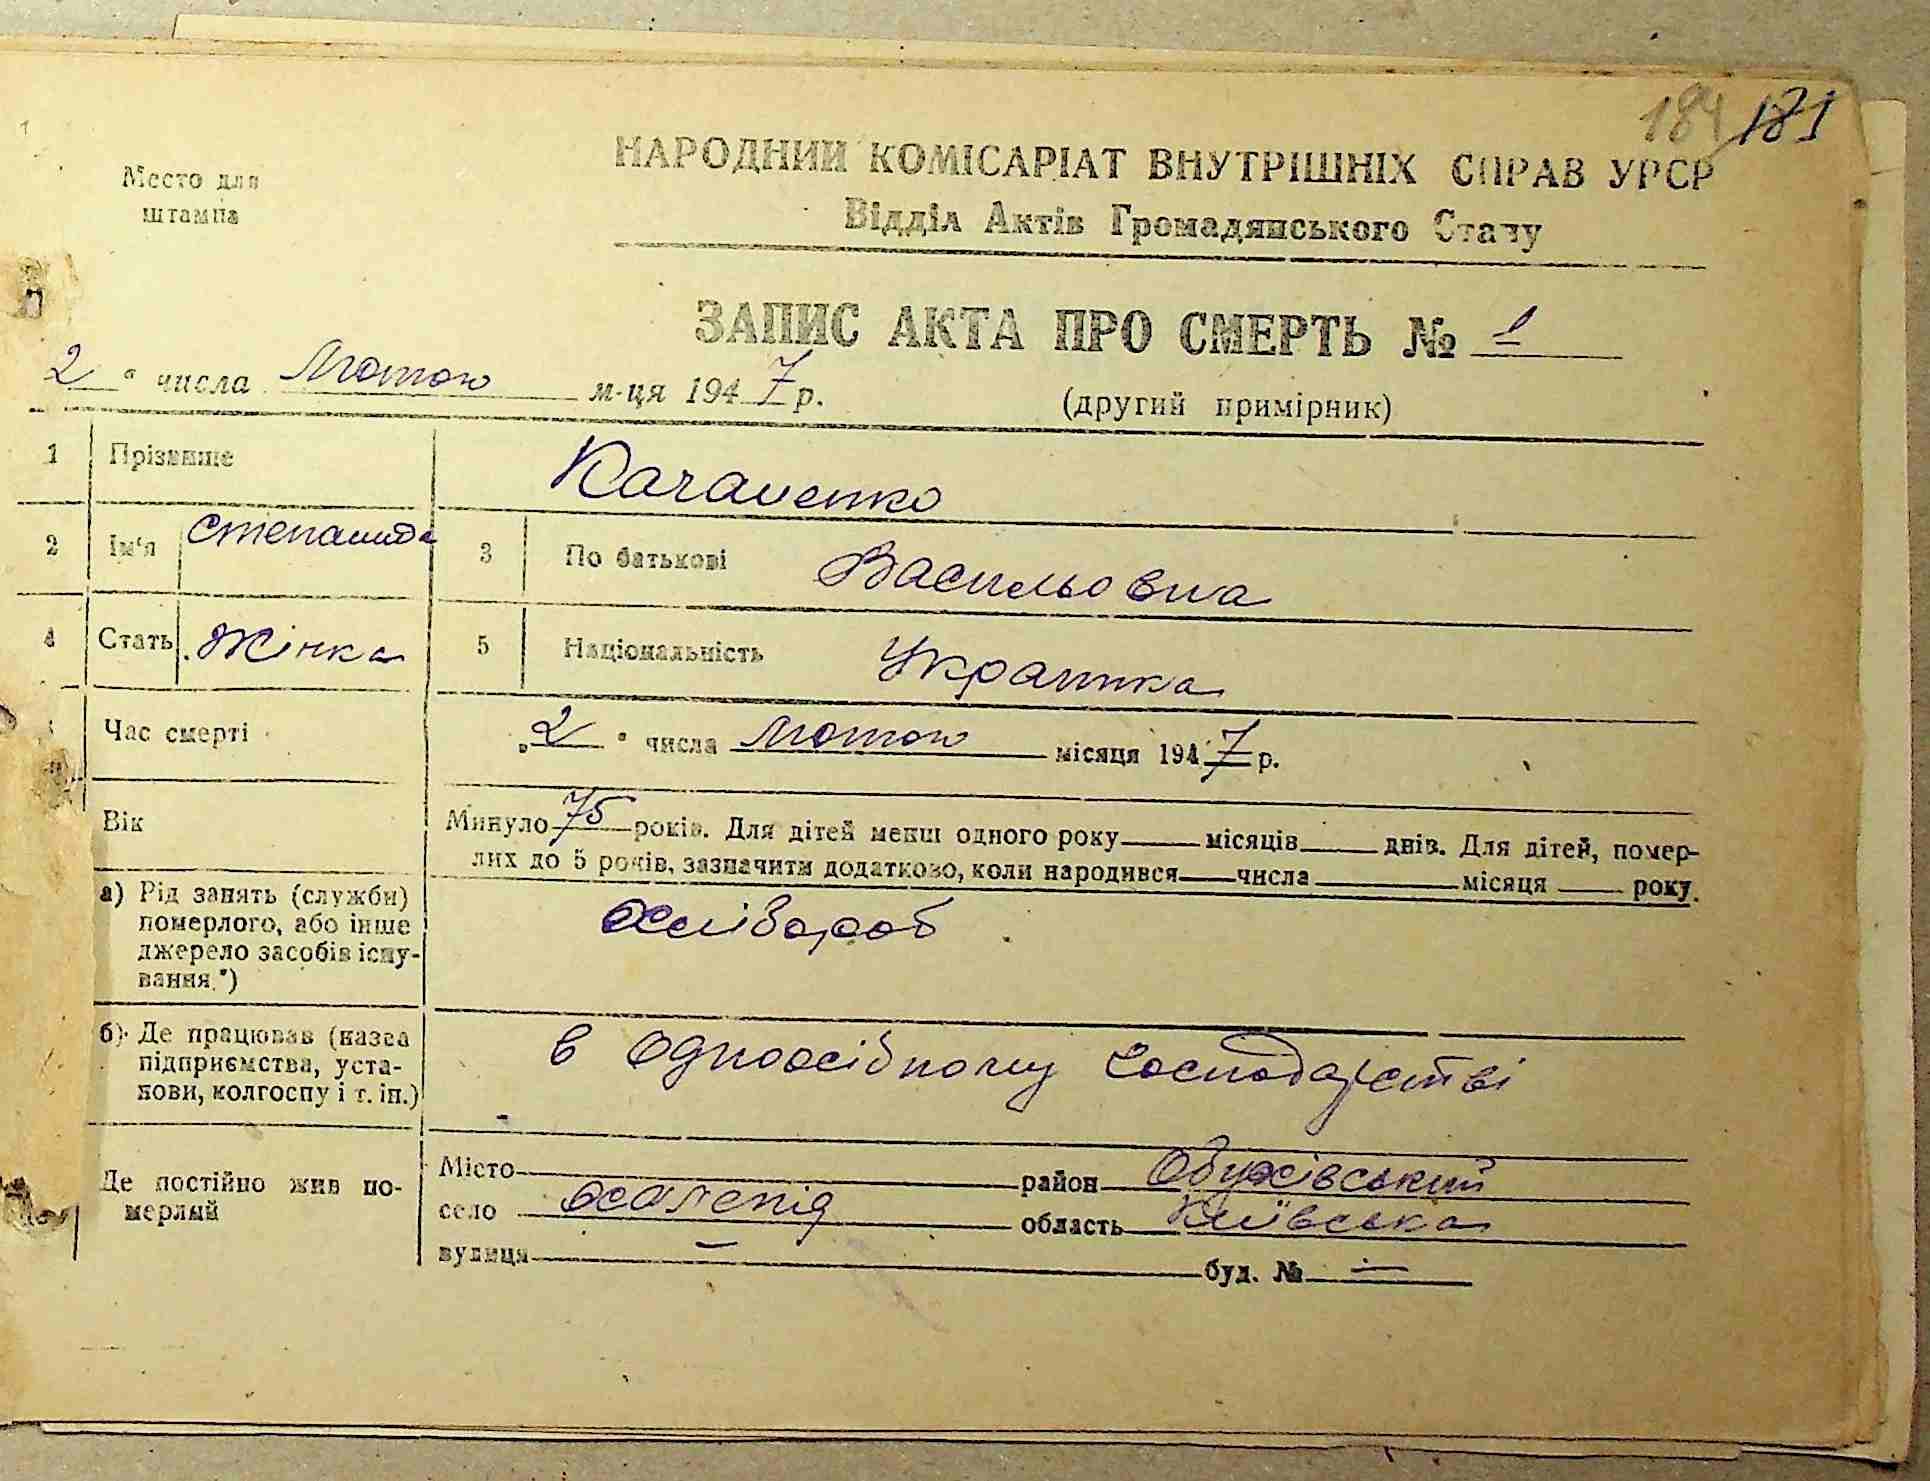 184 181
Место для
штампа
НАРОДНИЙ КОМІСАРІАТ ВНУТРІШНІХ СПРАВ УРСР
Відділ Актів Громадянського Стану
ЗАПИС АКТА ПРО СМЕРТЬ № 1
2 " числа Лютого м-ця 1947 р.
(другий примірник)
1 Прізвище Качаненко
2 Ім'я Степанида 3 По батькові Васильовна
4 Стать Жінка 5 Національність Українка
Час смерті „2" числа Лютого місяця 1947 р.
Вік Минуло 75 років. Для дітей менш одного року місяців днів. Для дітей, помер-
лих до 5 років, зазначити додатково, коли народився числа місяця року.
а) Рід занять (служби) хлібороб
померлого, або інше
джерело засобів існу-
вання.*)
б) Де працював (назва в одноосібному господарстві
підприємства, уста-
нови, колгоспу і т. ін.)
Де постійно жив по-
мерлий
Місто район Обухівський
село область Київська
вулиця — буд. № —